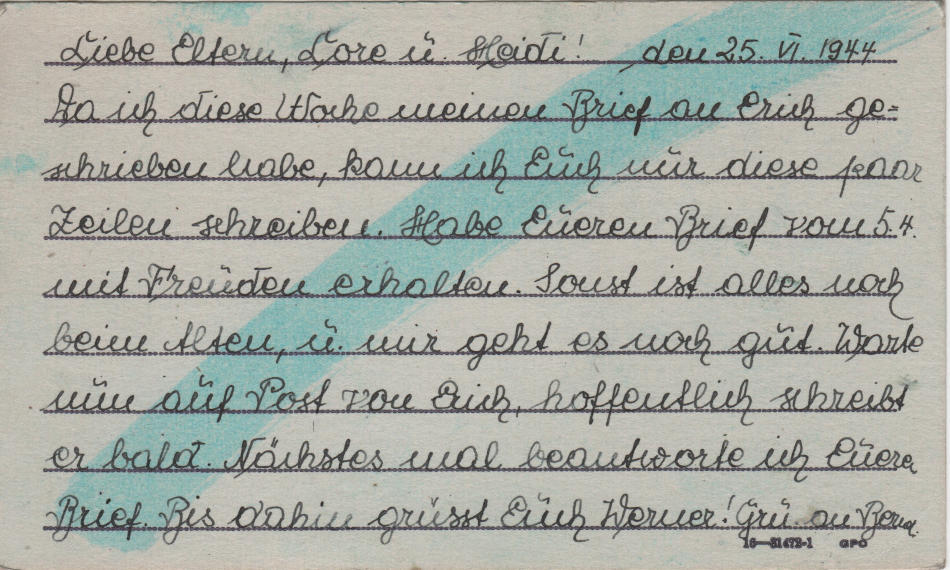 Liebe Eltern, Lore u. Heidi! den 25. VI. 1944
Da ich diese Woche meinen Brief an Erich ge=
schrieben habe, kann ich Euch nur diese paar
Zeilen schreiben. Habe Eueren Brief vom 5.4.
mit Freuden erhalten. Sonst ist alles noch
beim Alten, u. mir geht es noch gut. Warte
nun auf Post von Erich, hoffentlich schreibt
er bald. Nächstes mal beantworte ich Euern
Brief. Bis dahin grüsst Euch Werner! Grü. an
16—31472-1 GPO